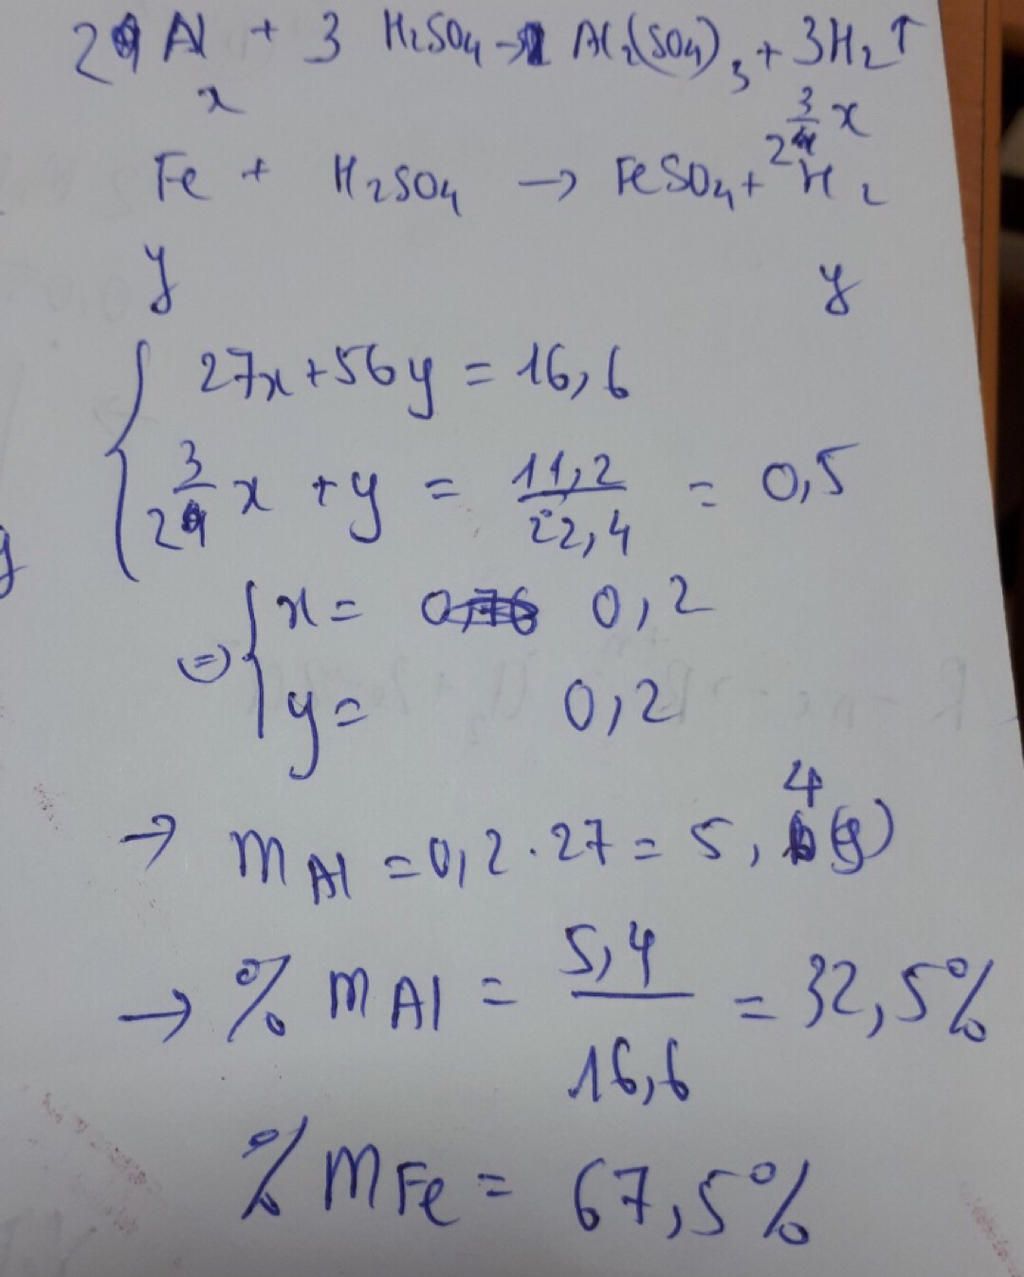 2 Al + 3 H₂SO₄ → Al₂(SO₄)₃ + 3H₂↑
x 3/2 x
Fe + H₂SO₄ → FeSO₄ + H₂
y y
{ 27x + 56y = 16,6
3/2 x + y = 11,2/22,4 = 0,5
=> { x = 0,2
y = 0,2
→ mAl = 0,2 . 27 = 5,4 (g)
→ % mAl = 5,4/16,6 = 32,5%
% mFe = 67,5%